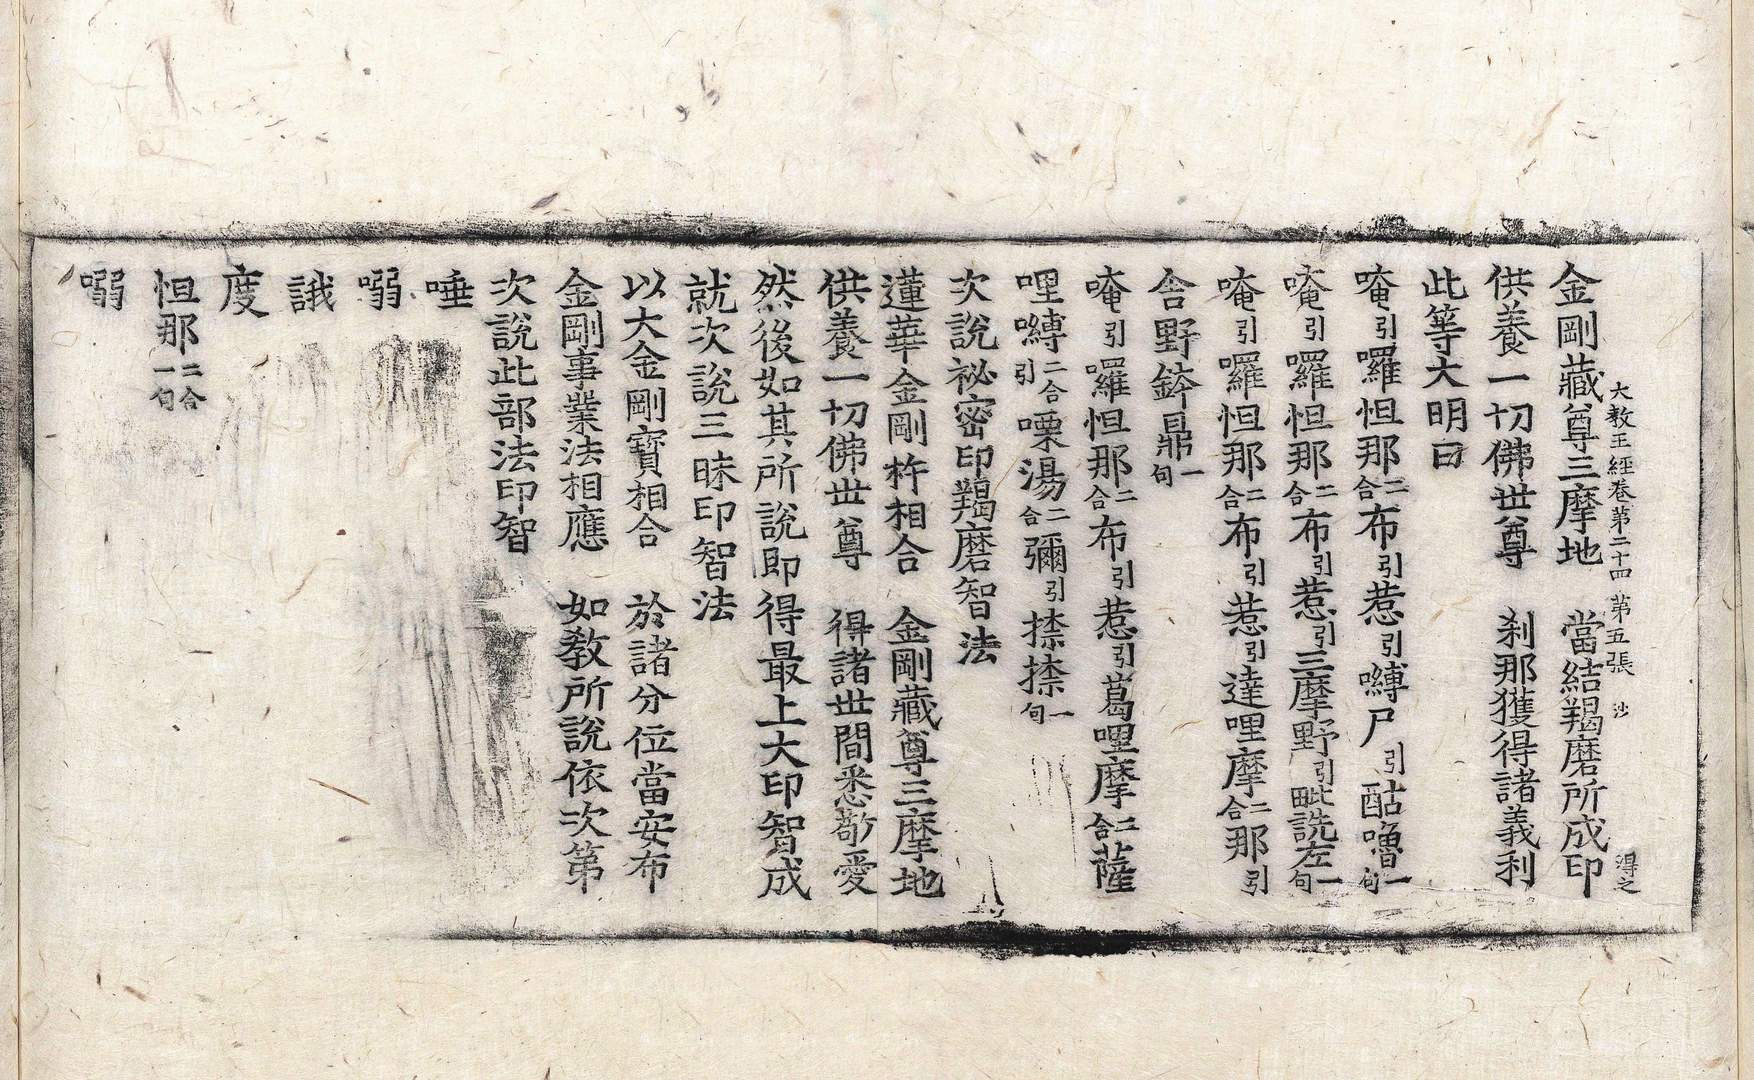 大教王經卷第二十四 第五張 沙 得之
金剛藏尊三摩地 當結羯磨所成印
供養一切佛世尊 刹那獲得諸義利
此等大明曰
唵引囉怛那二合布引惹引嚩尸引酤嚕一句
唵引囉怛那二合布引惹引三摩野引毗詵左一句
唵引囉怛那二合布引惹引達哩摩二合那引
舍野鉢鼎一句
唵引囉怛那二合布引惹引葛哩摩二合薩
哩嚩二合引嘌湯二合彌引捺捺一句
次說祕密印羯磨智法
蓮華金剛杵相合 金剛藏尊三摩地
供養一切佛世尊 得諸世間悉敬愛
然後如其所說即得最上大印智成
就次說三昧印智法
以大金剛寶相合 於諸分位當安布
金剛事業法相應 如教所說依次第
次說此部法印智
唾
嗍
誐
度
怛那二合一句
嗍